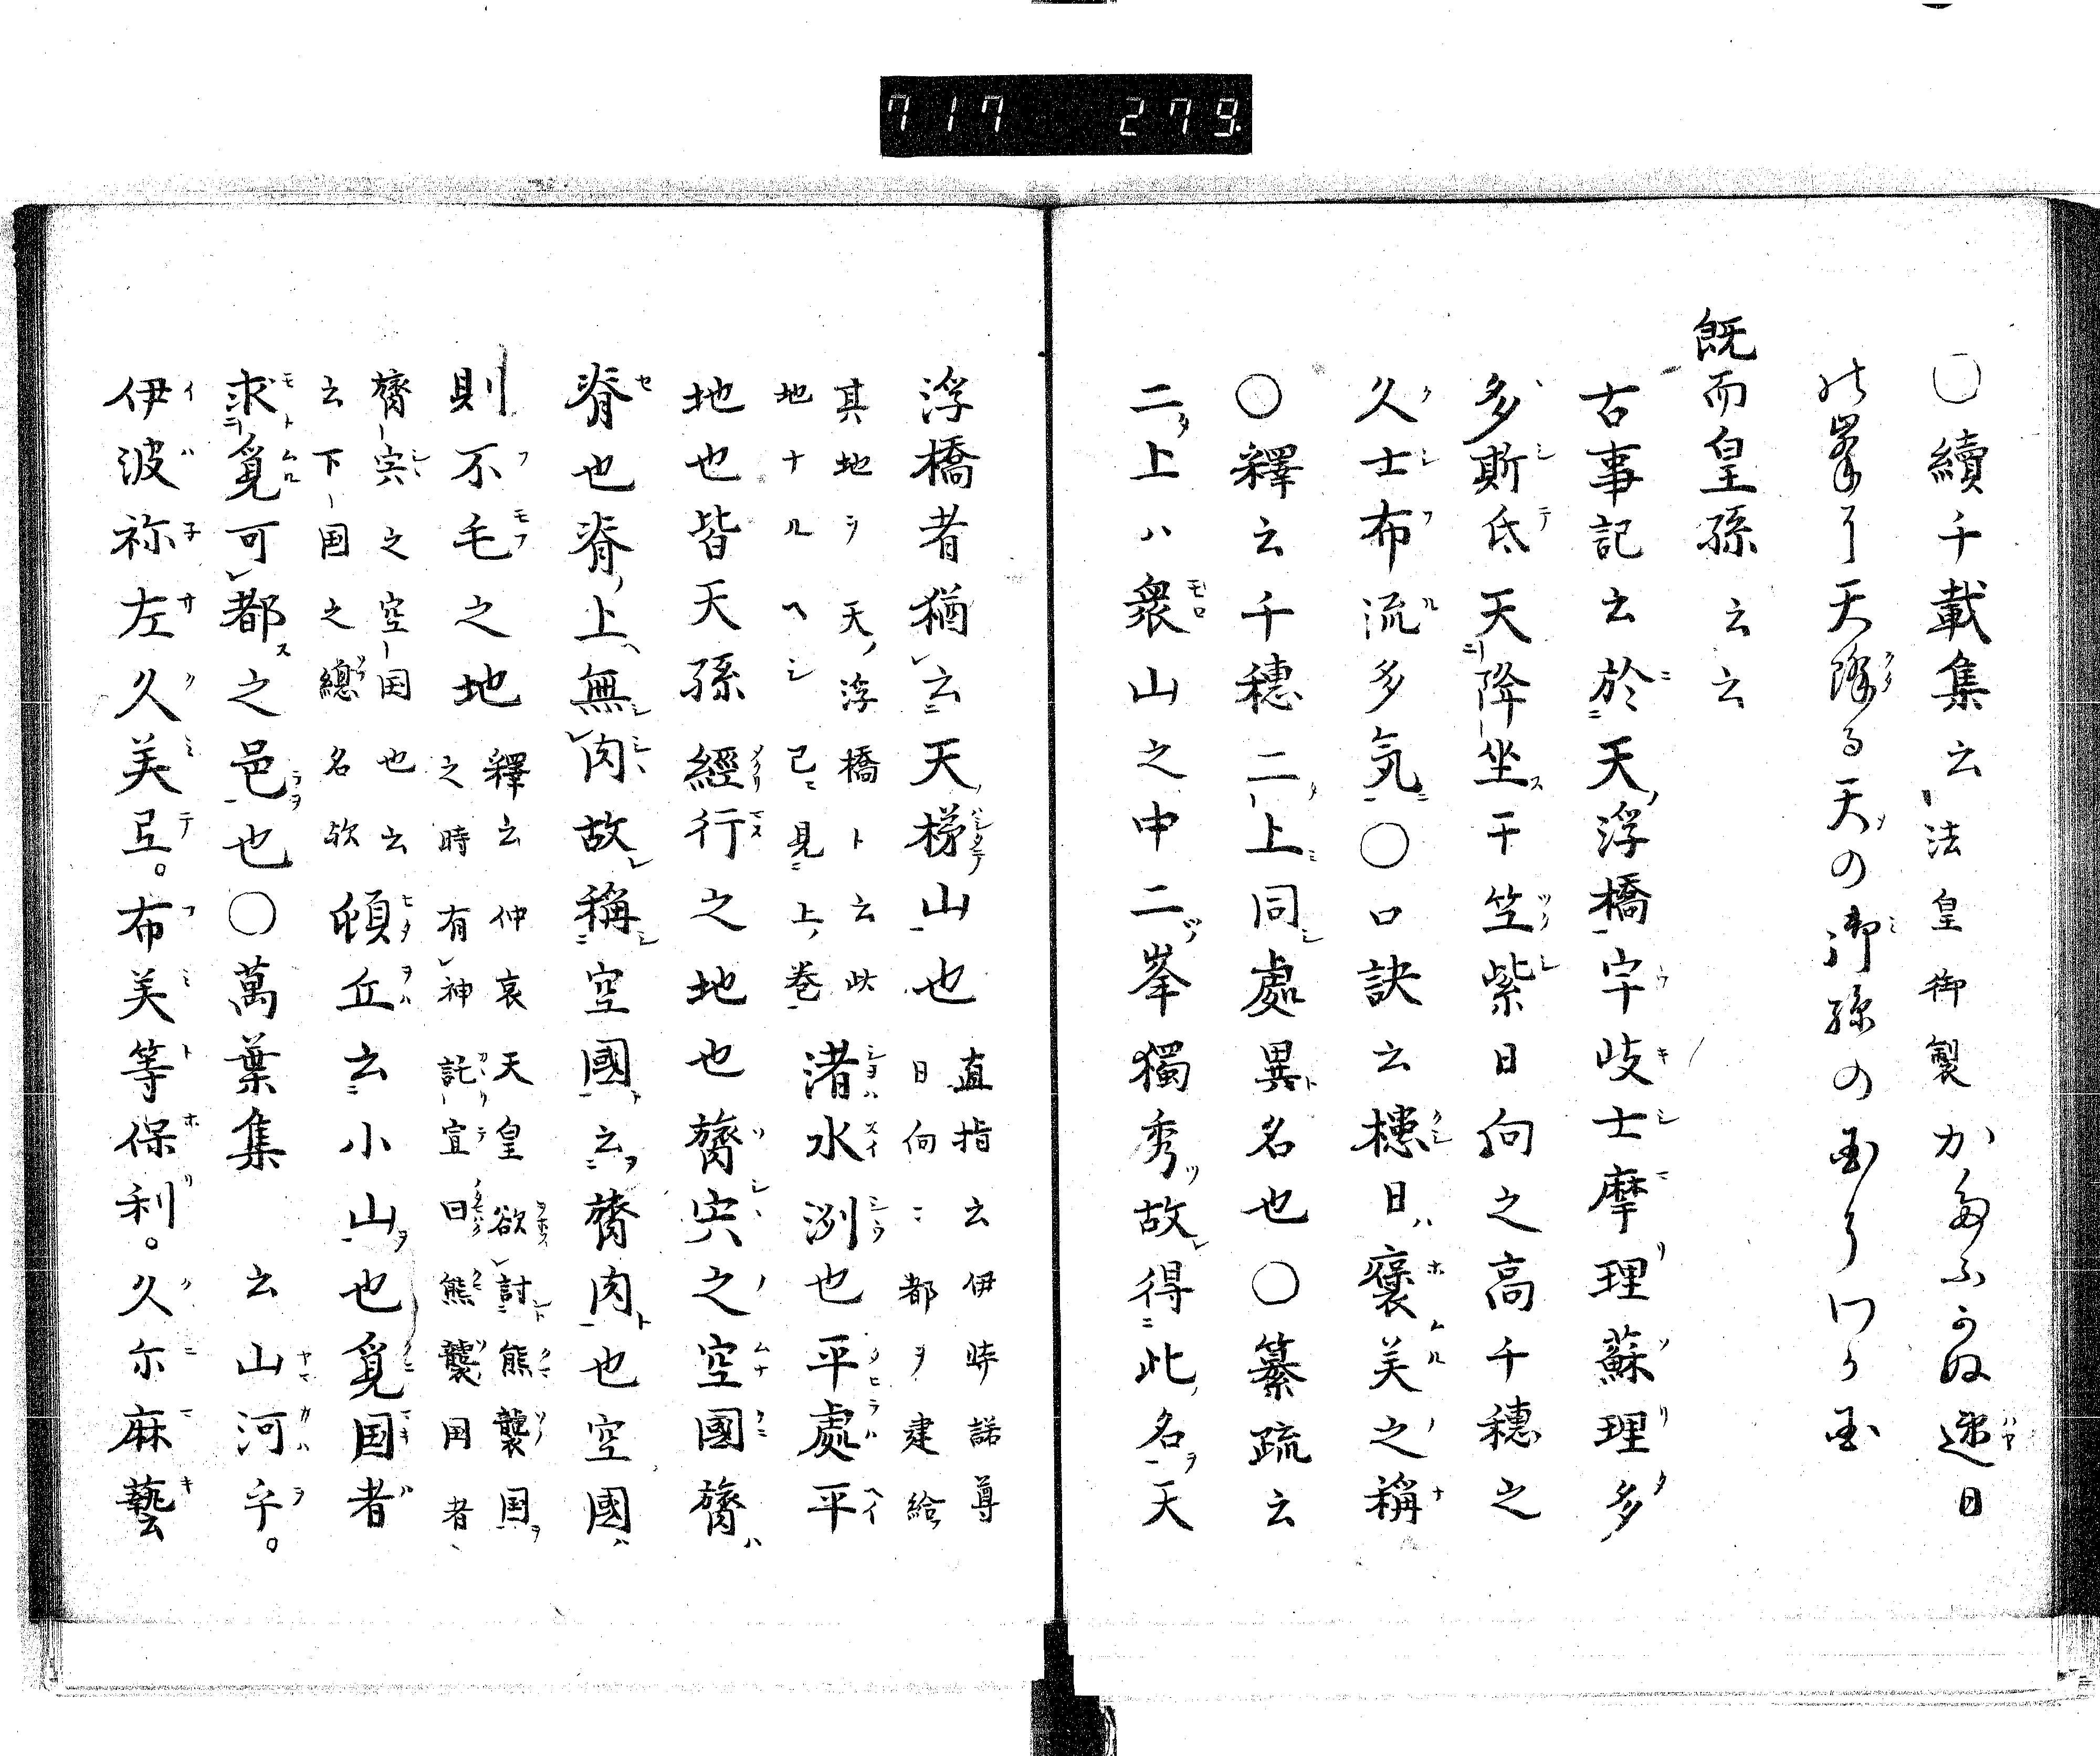 717 279
○續千載集云法皇御製かたふかぬ速日
の峯に天降る天の御孫の国そ わか国
既而皇孫云云
古事記云於天浮橋宇岐士摩理蘇理多
多斯氐天降坐于竺紫日向之高千穗之
久士布流多気○口訣云槵日褒美之稱
○釋云千穗二上同處異名也○纂疏云
二上ハ衆山之中二峯獨秀故得此名天
浮橋者猶云天梯山也直指云伊弉諾尊
日向ニ都ヲ建給
其地ヲ天浮橋ト云此
地ナルヘシ已見上巻渚水洲也平處平
地也皆天孫經行之地也膂宍之空國膂
脊也脊上無肉故稱空國云膂肉也空國
則不毛之地釋云仲哀天皇欲討熊襲国
之時有神託宣曰熊襲国者
膂宍之空国也云
云下国之總名欤頓丘云小山也覓国者
求覓可都之邑也○萬葉集 云山河乎。
伊波祢左久美弖。布美等保利。久尓麻藝